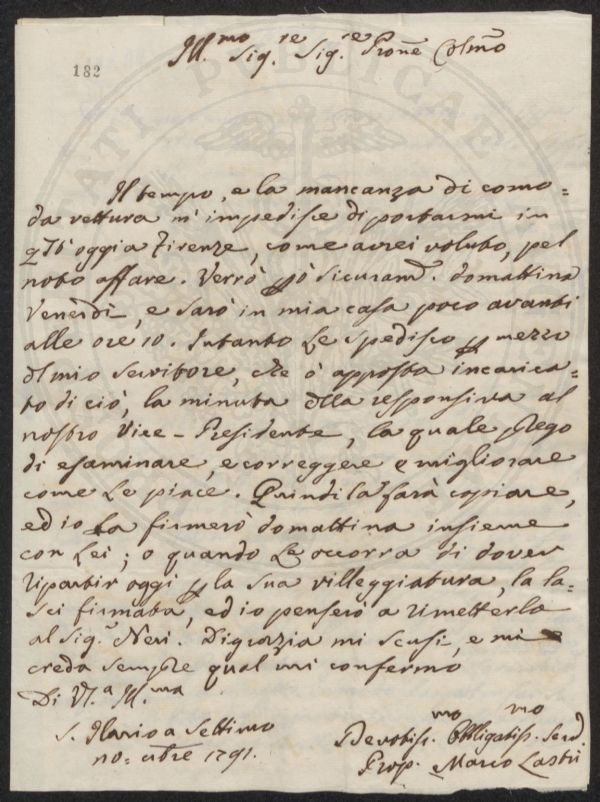 Ill.mo Sig.re Sig.re Prone Colmo
182
Il tempo, e la mancanza di como=
da vettura m'impedisce di portarmi in
q.to oggi a Firenze, come avrei voluto, pel
noto affare. Verrò però sicuram. domattina
Venerdì, e sarò in mia casa poco avanti
alle ore 10. Intanto Le spedisco per mezzo
del mio servitore, che ò apposta incarica=
to di ciò, la minuta della responsiva al
nostro Vice-Presidente, la quale prego
di esaminare, e correggere e migliorare
come Le piace. Quindi la farà copiare,
ed io la firmerò domattina insieme
con Lei; o quando Le occorra di dover
ripartir oggi per la sua villeggiatura, la la=
sci firmata, ed io penserò a rimetterla
al Sig. Neri. Di grazia mi scusi, e mi
creda sempre qual mi confermo
Di V.a Ill.ma
S. Ilario a Settimo
1791.
Devotiss.mo Obbligatiss.mo Serv.
Prop. Marco Lastri